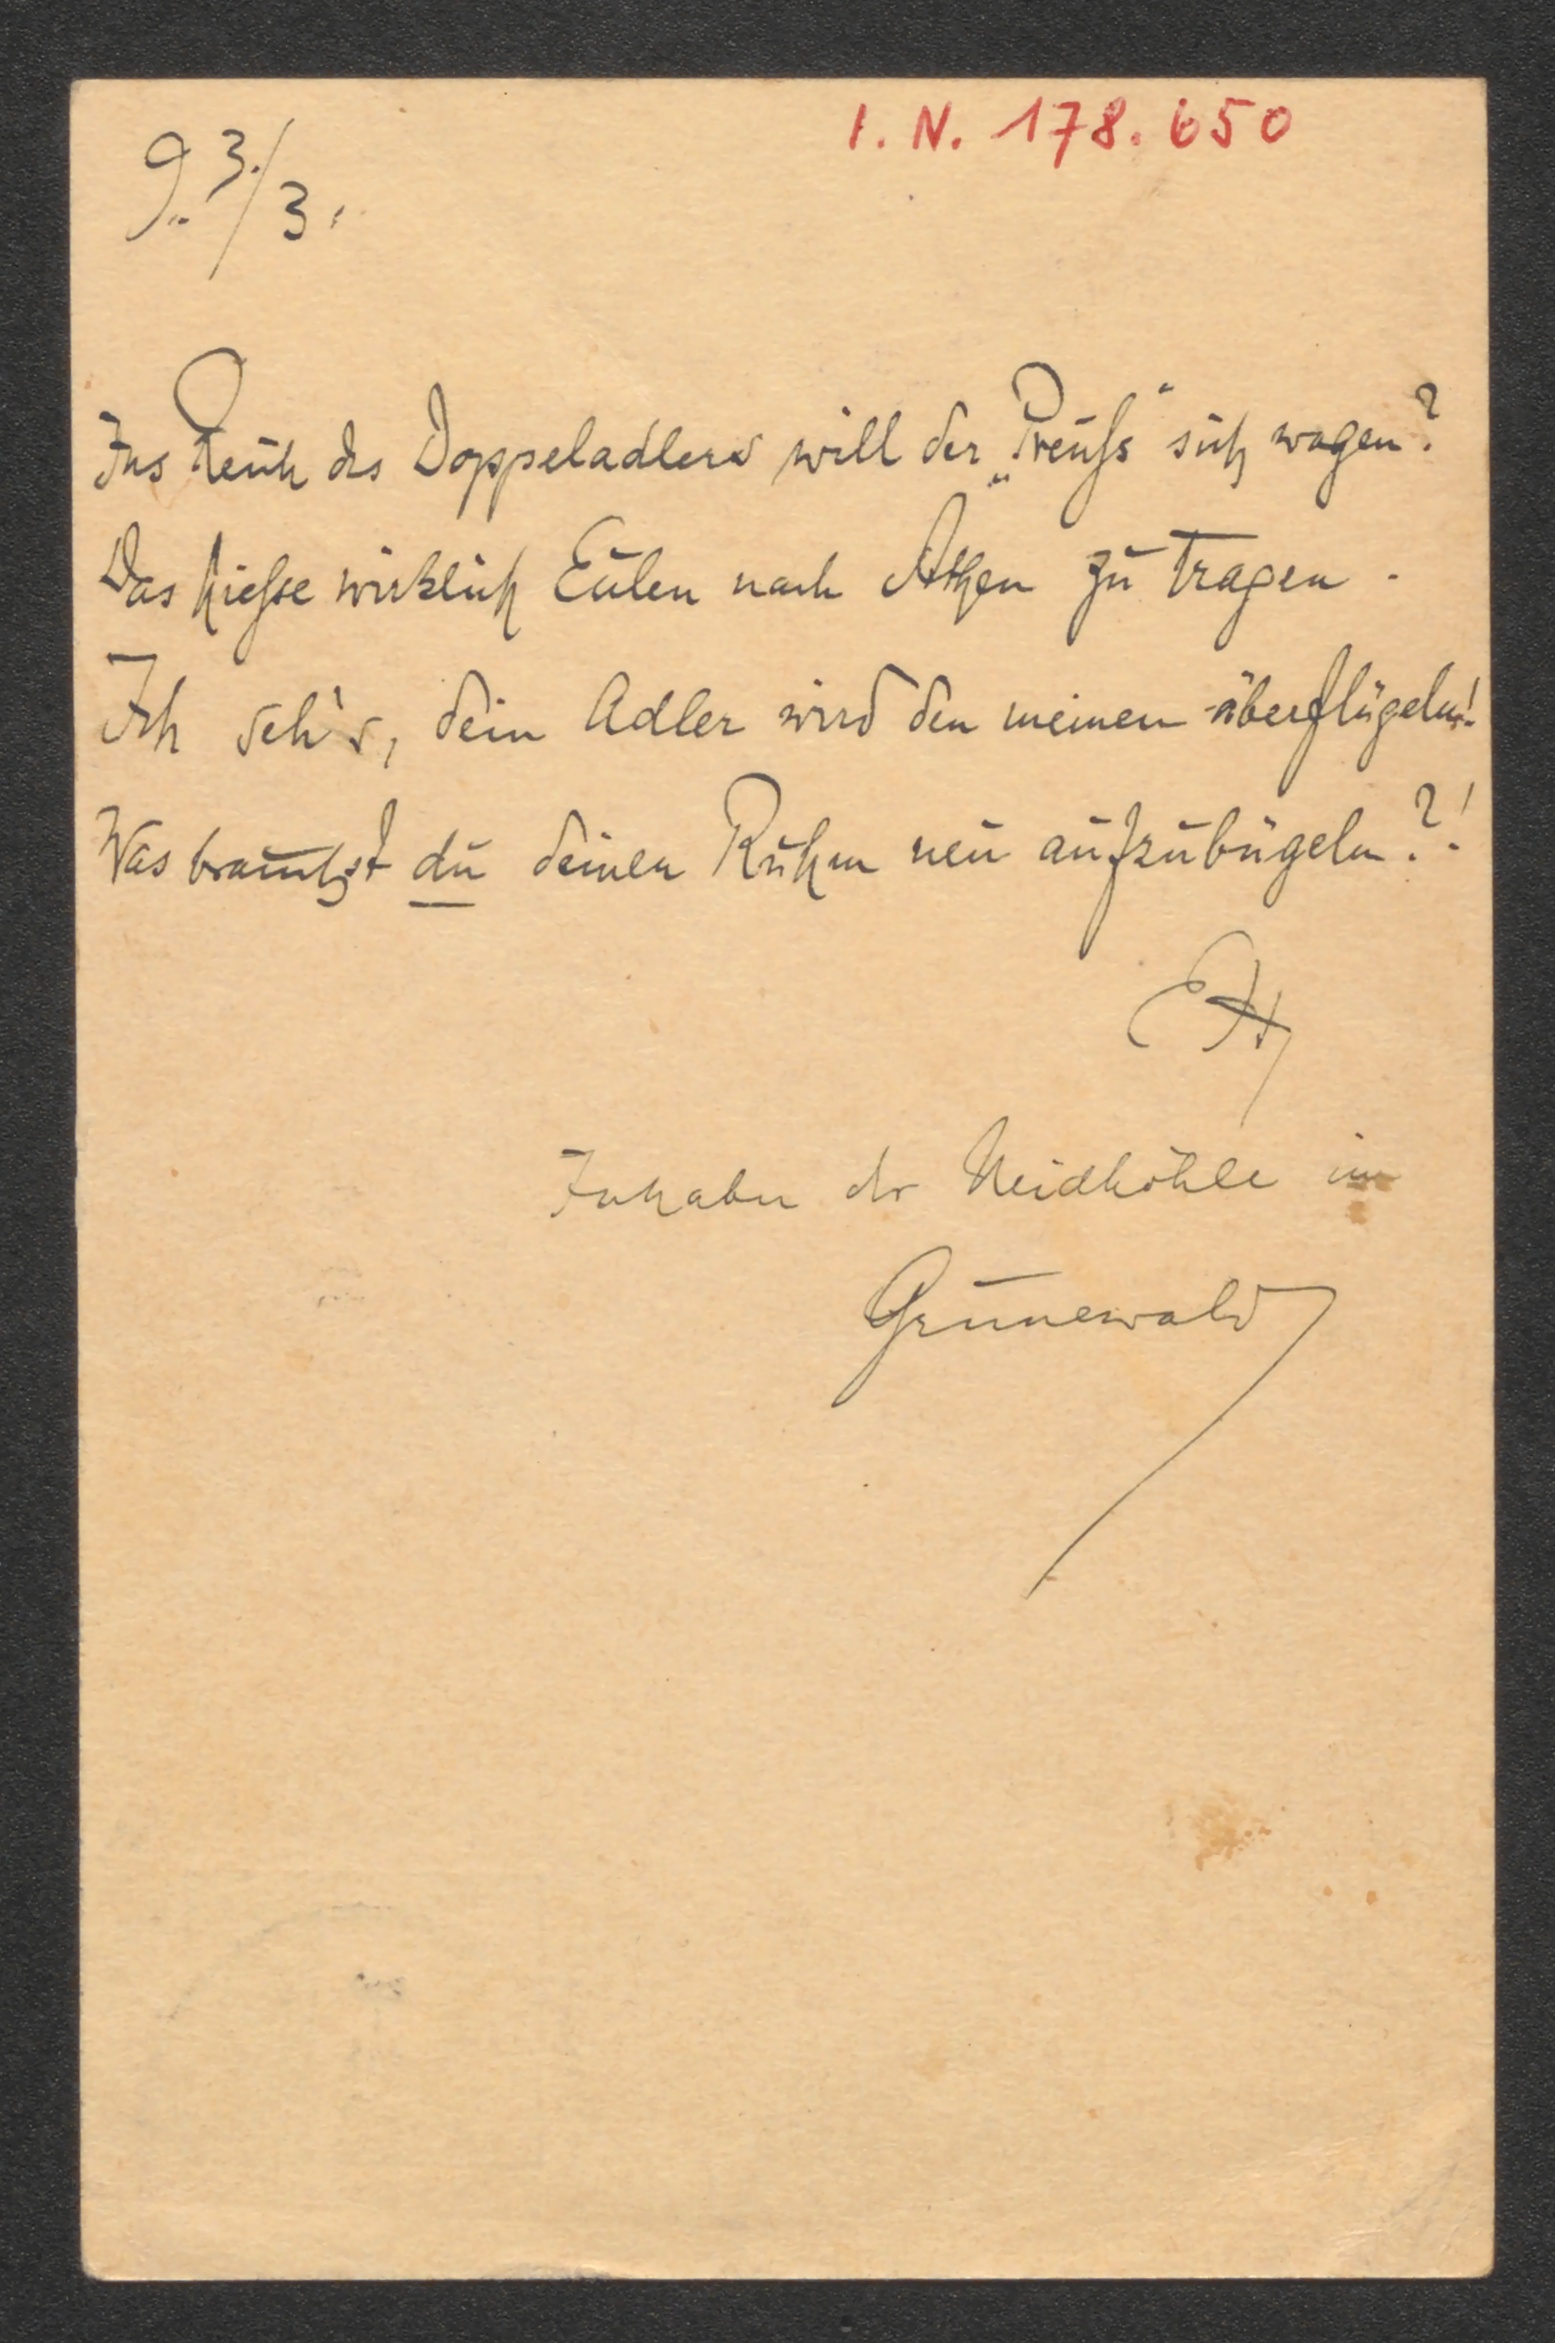 I. N. 178.650
9. 3./3.
Ins Reich des Doppeladlers will der „Preuſs“ sich wagen?
Das hieſse wirklich Eulen nach Athen zu tragen.
Ich seh's, dein Adler wird den meinen überflügeln!
Was brauchst du deinen Ruhm neu aufzubügeln?!
EH
Inhaber der Neidhöhle im
Grunewald